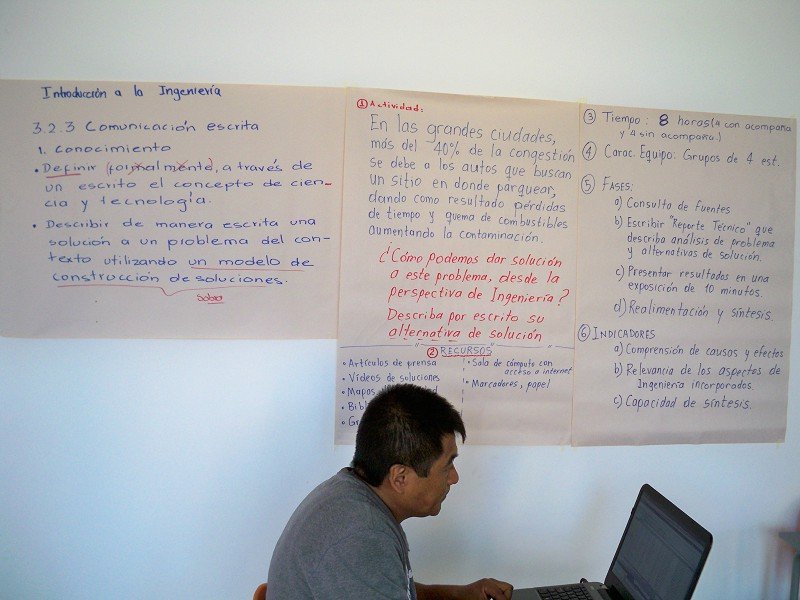 Introducción a la Ingeniería
3.2.3 Comunicación escrita
1. Conocimiento
• Definir (formalmente), a través de
un escrito el concepto de cien-
cia y tecnología.
• Describir de manera escrita una
solución a un problema del con-
texto utilizando un modelo de
construcción de soluciones.
① Actividad:
En las grandes ciudades,
más del 40% de la congestión
se debe a los autos que buscan
un sitio en donde parquear,
dando como resultado pérdidas
de tiempo y quema de combustibles
aumentando la contaminación.
¿Cómo podemos dar solución
a este problema, desde la
perspectiva de Ingeniería?
Describa por escrito su
alternativa de solución
② RECURSOS
• Artículos de prensa
• Vídeos de soluciones
• Mapas
• Sala de cómputo con
acceso a internet
• Marcadores, papel
③ Tiempo: 8 horas (4 con acompaña
y 4 sin acompaña.)
④ Carac. Equipo: Grupos de 4 est.
⑤ FASES:
a) Consulta de fuentes
b) Escribir "Reporte Técnico" que
describa análisis de problema
y alternativas de solución.
c) Presentar resultados en una
exposición de 10 minutos.
d) Realimentación y síntesis.
⑥ INDICADORES
a) Comprensión de causas y efectos
b) Relevancia de los aspectos de
Ingeniería incorporados.
c) Capacidad de síntesis.